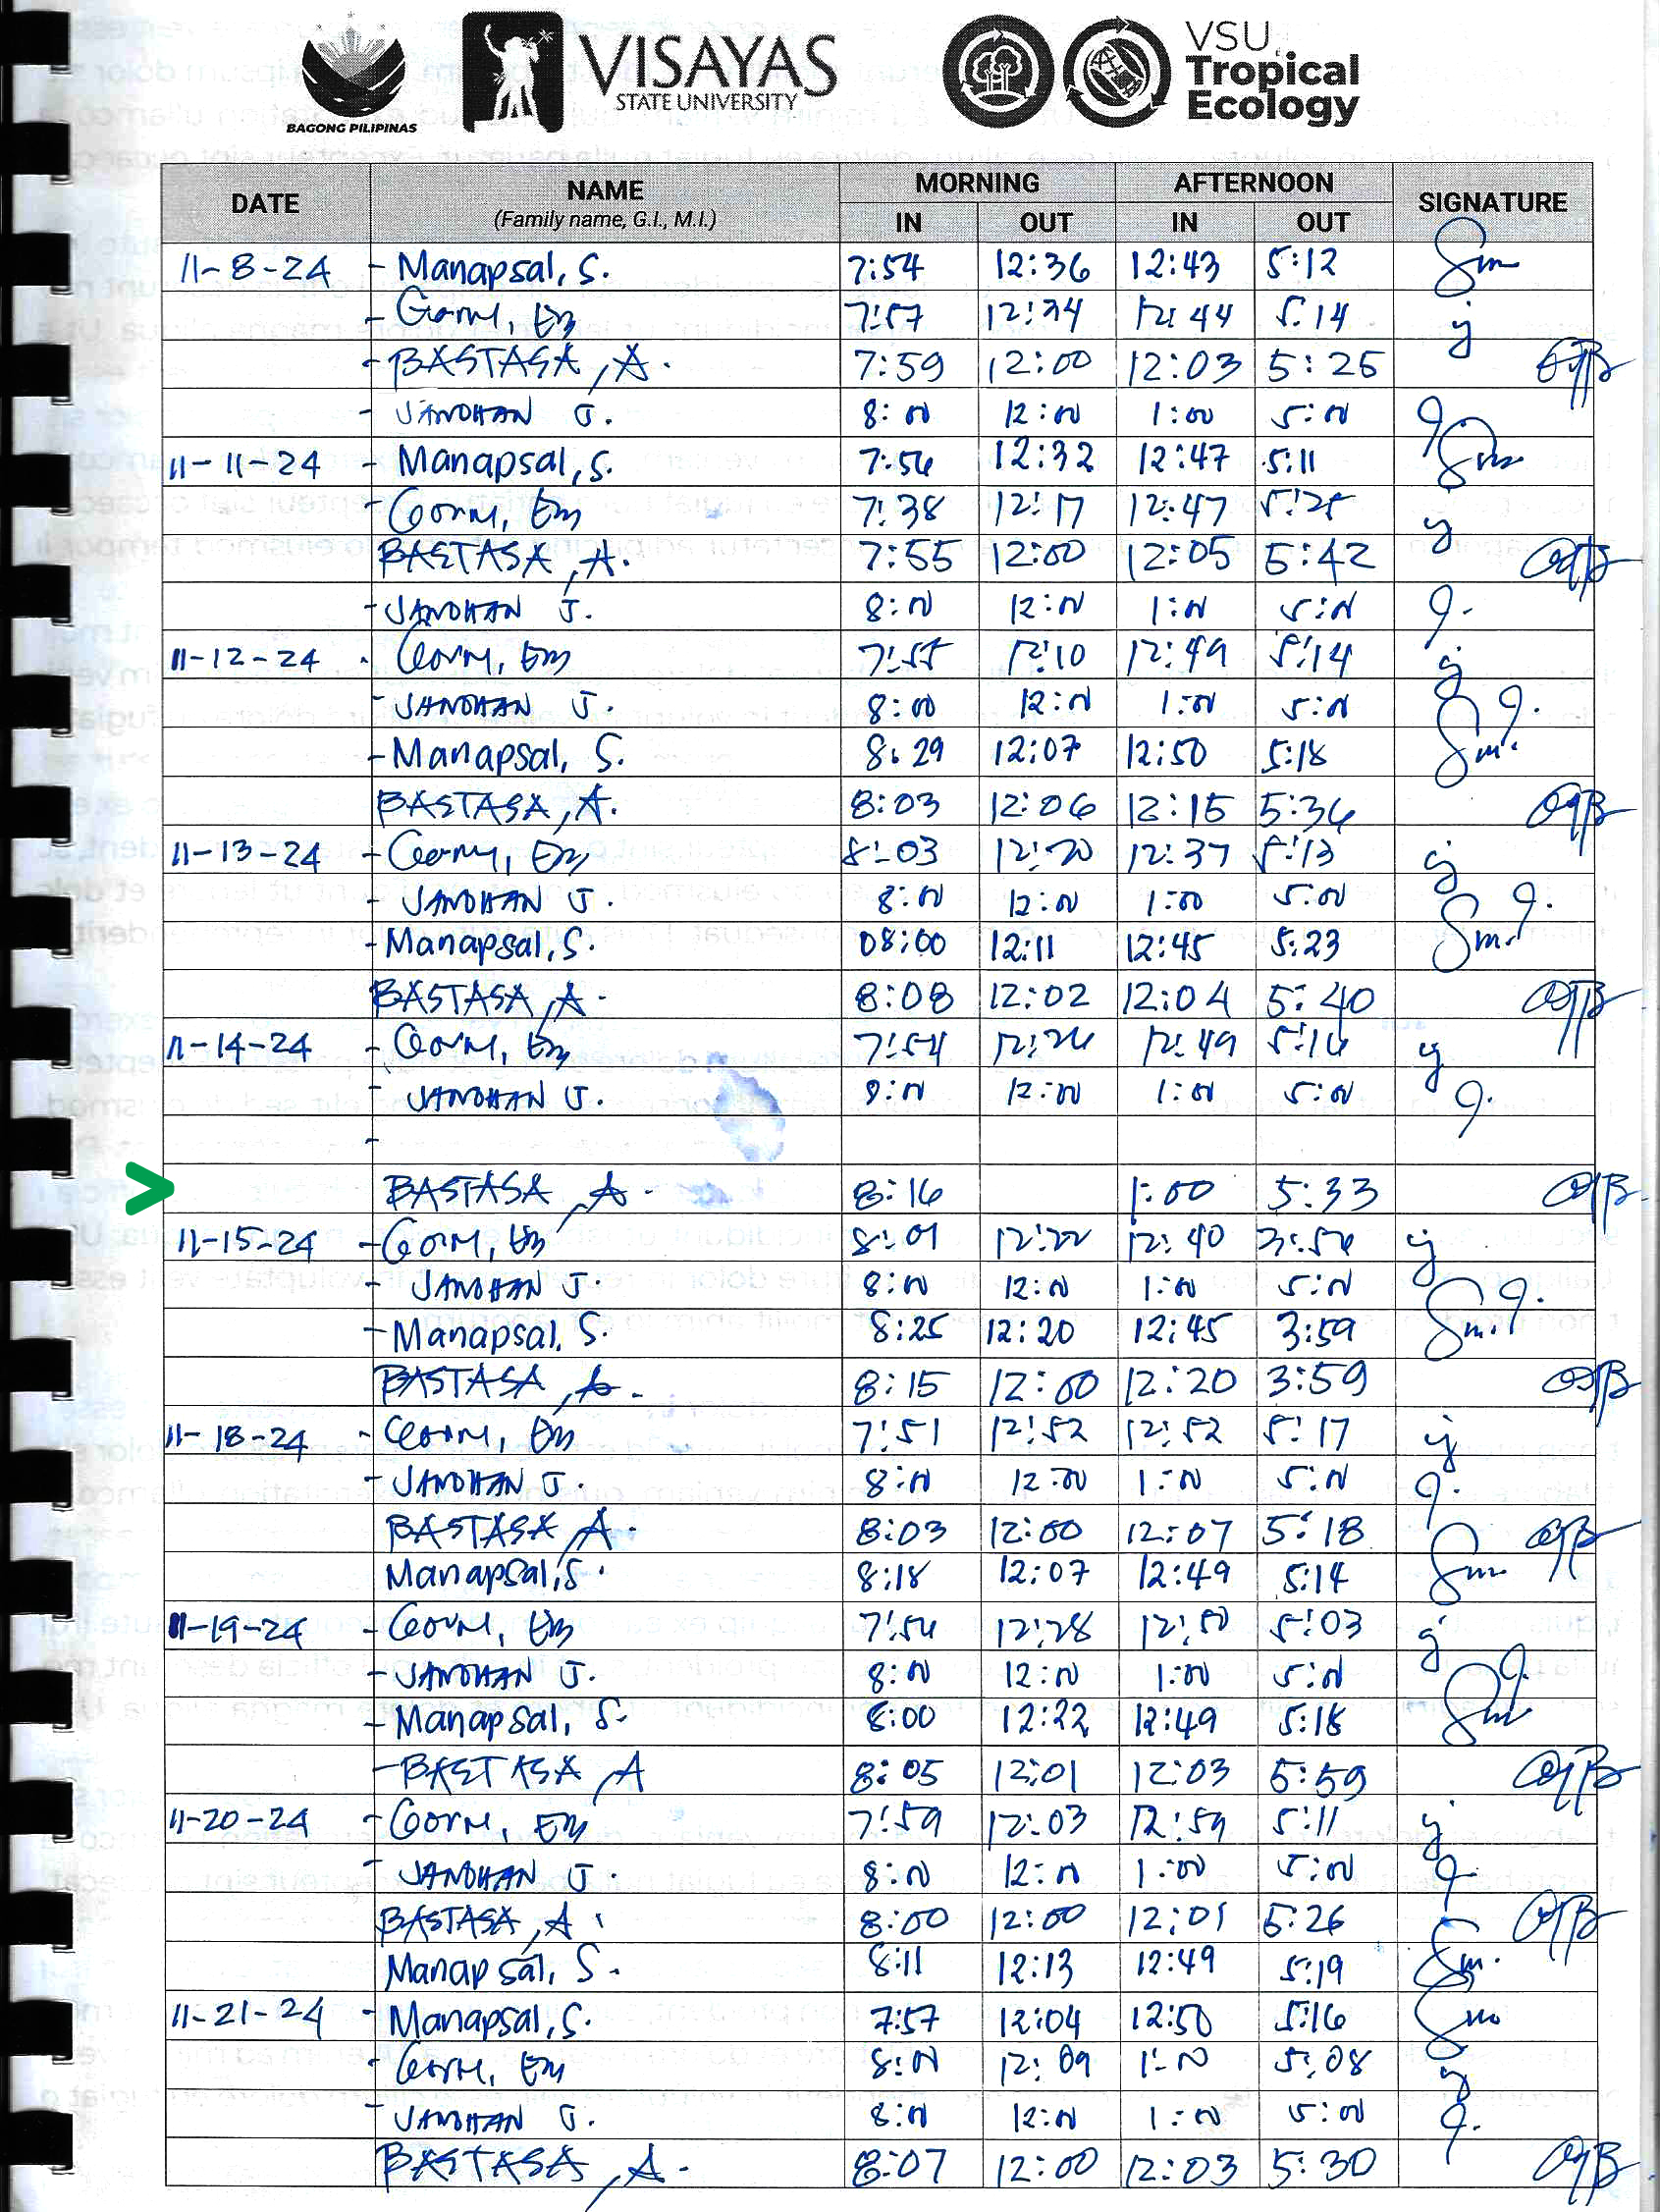 BAGONG PILIPINAS
VISAYAS
STATE UNIVERSITY
VSU
Tropical
Ecology
DATE NAME (Family name, G.I., M.I.) MORNING AFTERNOON SIGNATURE
IN OUT IN OUT
11-8-24 - Manapsal, S. 7:54 12:36 12:43 5:12
- 7:57 12:34 12:44 5:14
- BASTASA, A. 7:59 12:00 12:03 5:25
- JANDHAN J. 8:00 12:00 1:00 5:00
11-11-24 - Manapsal, S. 7:56 12:32 12:47 5:11
- 7:38 12:17 12:47 5:25
BASTASA, A. 7:55 12:00 12:05 5:42
- JANDHAN J. 8:00 12:00 1:00 5:00
11-12-24 - 7:55 12:10 12:49 5:14
- JANDHAN J. 8:00 12:00 1:00 5:00
- Manapsal, S. 8:29 12:07 12:50 5:18
BASTASA, A. 8:03 12:06 12:15 5:36
11-13-24 - 8:03 12:20 12:37 5:13
- JANDHAN J. 8:00 12:00 1:00 5:00
- Manapsal, S. 08:00 12:11 12:45 5:23
BASTASA, A. 8:08 12:02 12:04 5:40
11-14-24 - 7:54 12:26 12:49 5:16
- JANDHAN J. 8:00 12:00 1:00 5:00
-
> BASTASA, A. 8:16 1:00 5:33
11-15-24 - 8:01 12:22 12:40 3:56
- JANDHAN J. 8:00 12:00 1:00 5:00
- Manapsal, S. 8:25 12:20 12:45 3:59
BASTASA, A. 8:15 12:00 12:20 3:59
11-18-24 - 7:51 12:52 12:52 5:17
- JANDHAN J. 8:00 12:00 1:00 5:00
BASTASA, A. 8:03 12:00 12:07 5:18
Manapsal, S. 8:18 12:07 12:49 5:14
11-19-24 - 7:56 12:28 12:50 5:03
- JANDHAN J. 8:00 12:00 1:00 5:00
- Manapsal, S. 8:00 12:22 12:49 5:18
- BASTASA, A 8:05 12:01 12:03 5:59
11-20-24 - 7:59 12:03 12:59 5:11
- JANDHAN J. 8:00 12:00 1:00 5:00
BASTASA, A. 8:00 12:00 12:01 5:26
Manapsal, S. 8:11 12:13 12:49 5:19
11-21-24 - Manapsal, S. 7:57 12:04 12:50 5:16
- 8:00 12:09 1:00 5:08
- JANDHAN J. 8:00 12:00 1:00 5:00
BASTASA, A. 8:07 12:00 12:03 5:30